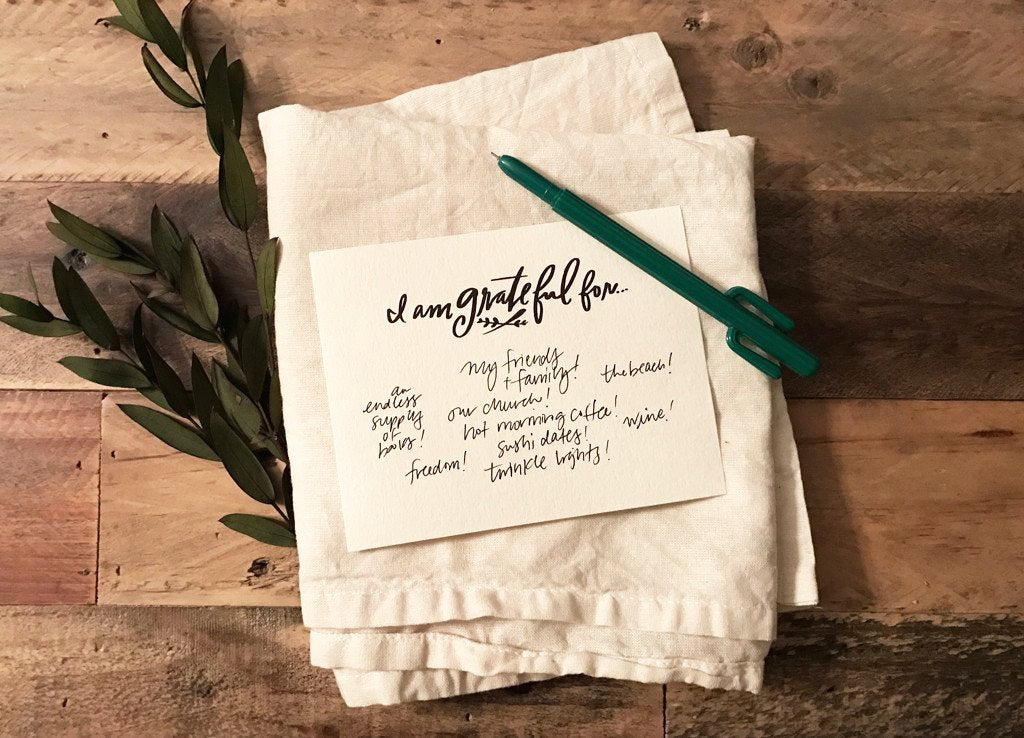 I am grateful for...
my friends
+ family!
the beach!
an
endless
supply
of
books!
our church!
hot morning coffee!
wine!
sushi dates!
freedom!
twinkle lights!